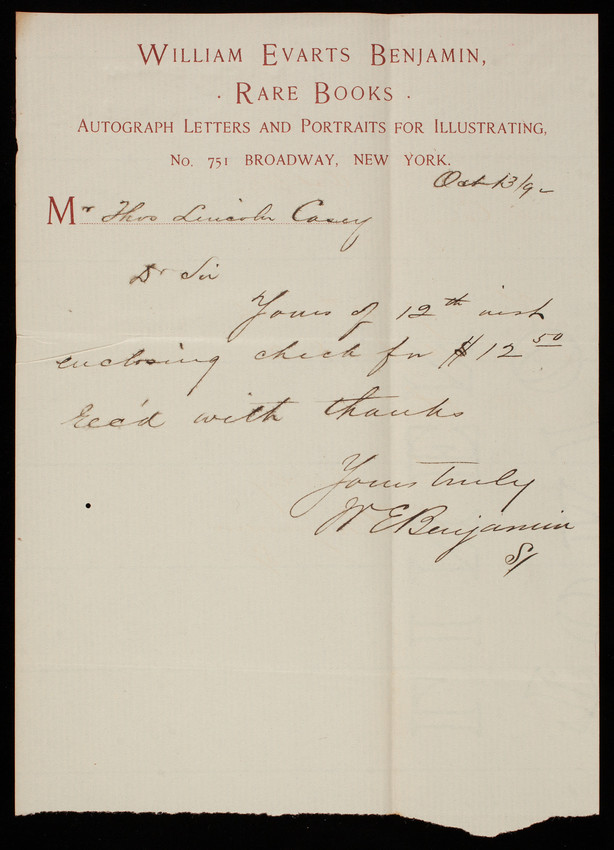 WILLIAM EVARTS BENJAMIN,
· RARE BOOKS ·
AUTOGRAPH LETTERS AND PORTRAITS FOR ILLUSTRATING,
No. 751 BROADWAY, NEW YORK.
Oct 13/9
Mr Thos Lincoln Casey
Dr Sir
Yours of 12th inst
enclosing check for $12 50
Rec'd with thanks
Yours truly
W E Benjamin